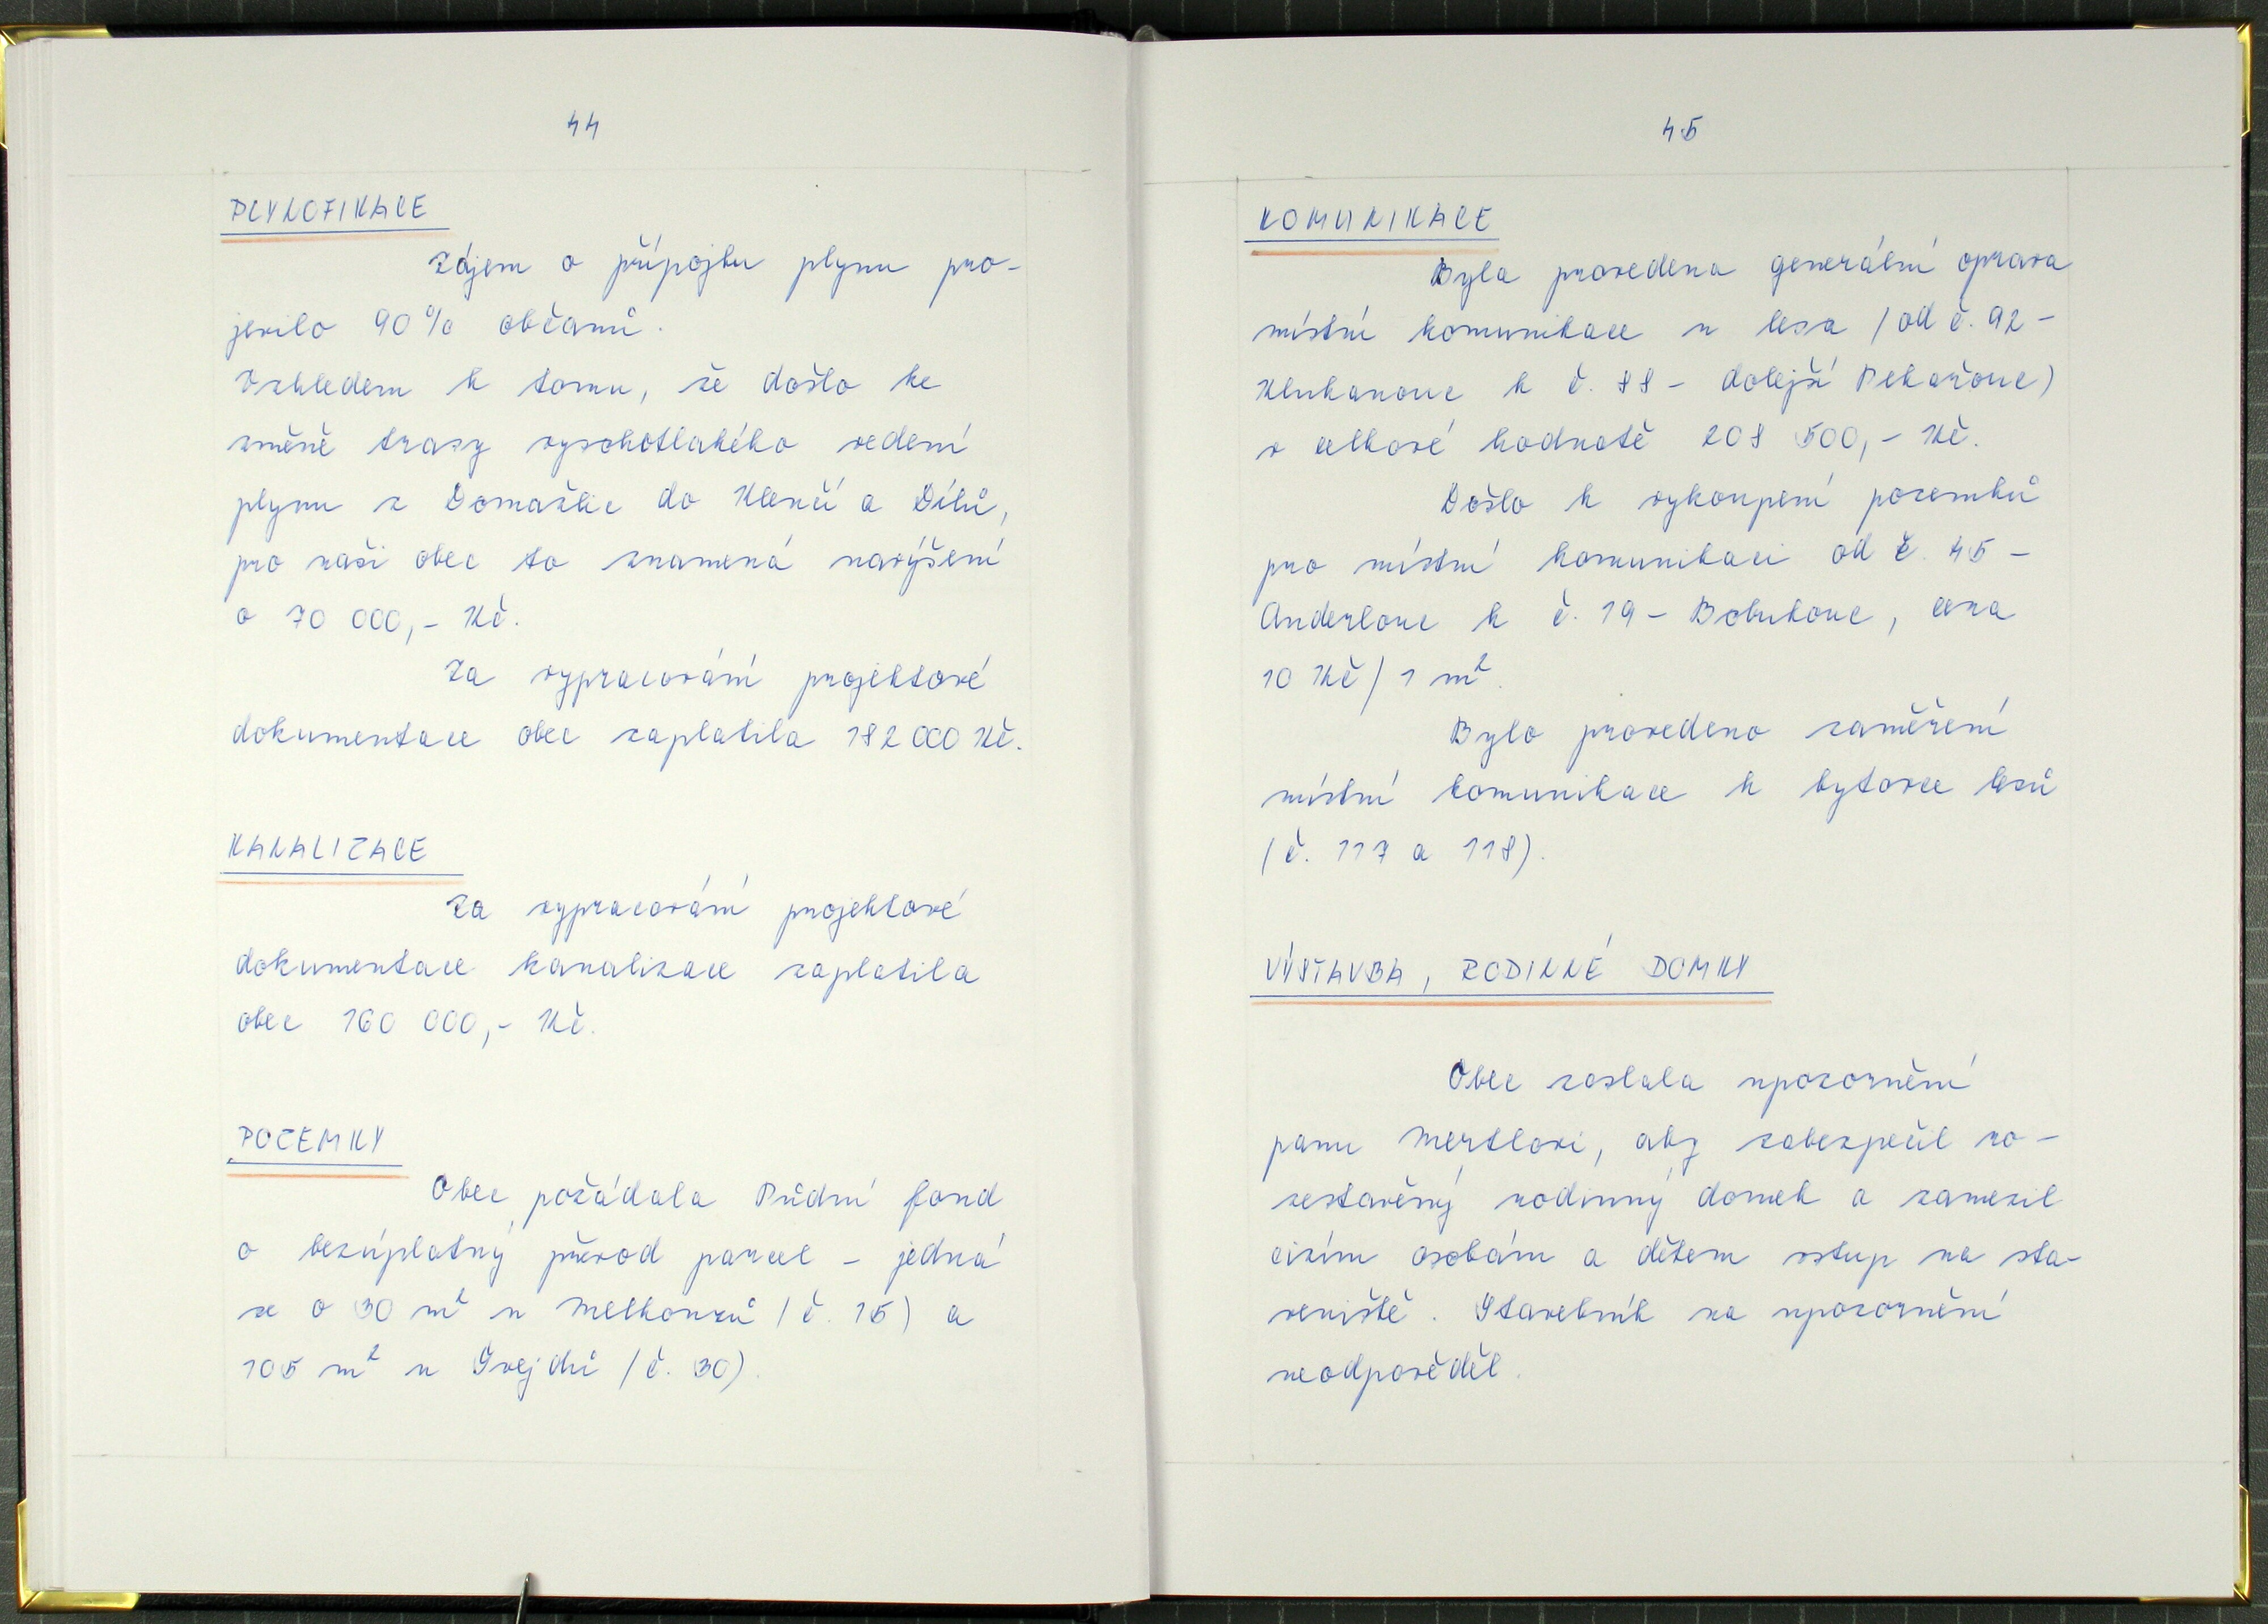 44
PLYNOFIKACE
Zájem o přípojku plynu pro-
jevilo 90% občanů.
Vzhledem k tomu, že došlo ke
změně trasy vysokotlakého vedení
plynu z Domažlic do Klenčí a Dílů,
pro naši obec to znamená navýšení
o 70 000,- Kč.
Za vypracování projektové
dokumentace obec zaplatila 182 000 Kč.
KANALIZACE
Za vypracování projektové
dokumentace kanalizace zaplatila
obec 160 000,- Kč.
POZEMKY
Obec požádala Půdní fond
o bezúplatný převod parcel - jedná
se o 30 m² u Melkonzů (č. 15) a
105 m² u Švejdů (č. 30).
45
KOMUNIKACE
Byla provedena generální oprava
místní komunikace u lesa (od č. 92-
Klukanouc k č. 88 - dolejší Pekařouc)
v celkové hodnotě 208 500,- Kč.
Došlo k vykoupení pozemků
pro místní komunikaci od č. 45 -
Anderlouc k č. 19 - Bobukouc, cena
10 Kč/1 m².
Bylo provedeno zaměření
místní komunikace k bytovce lesů
(č. 117 a 118).
VÝSTAVBA, RODINNÉ DOMKY
Obec zaslala upozornění
panu Mertlovi, aby zabezpečil ro-
zestavěný rodinný domek a zamezil
cizím osobám a dětem vstup na sta-
veniště. Stavebník na upozornění
neodpověděl.